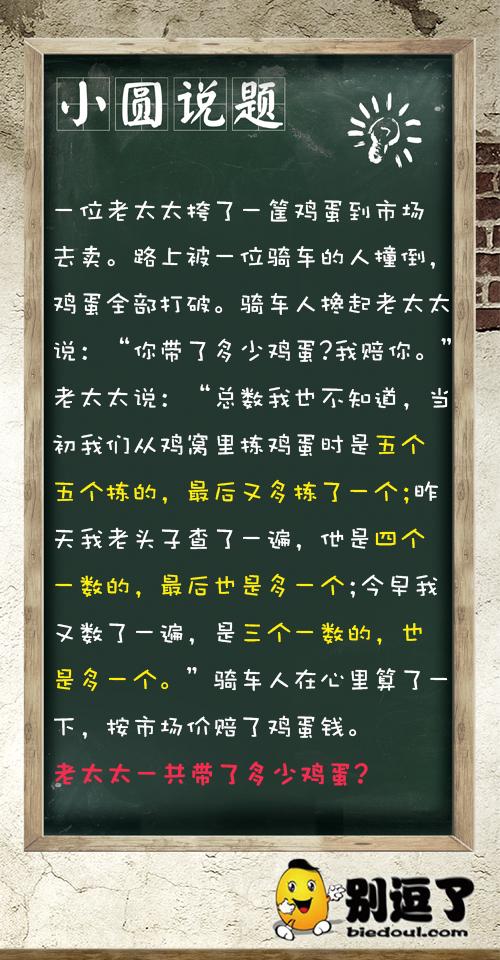 小圆说题
一位老太太挎了一筐鸡蛋到市场
去卖。路上被一位骑车的人撞倒，
鸡蛋全部打破。骑车人搀起老太太
说：“你带了多少鸡蛋?我赔你。”
老太太说：“总数我也不知道，当
初我们从鸡窝里拣鸡蛋时是五个
五个拣的，最后又多拣了一个;昨
天我老头子查了一遍，他是四个
一数的，最后也是多一个;今早我
又数了一遍，是三个一数的，也
是多一个。”骑车人在心里算了一
下，按市场价赔了鸡蛋钱。
老太太一共带了多少鸡蛋?
别逗了
biedoul.com